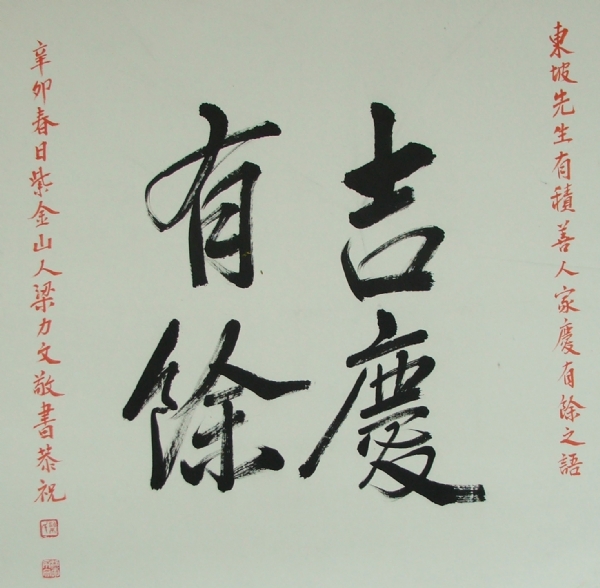 東坡先生有積善人家慶有餘之語
吉慶
有餘
辛卯春日紫金山人梁力文敬書恭祝